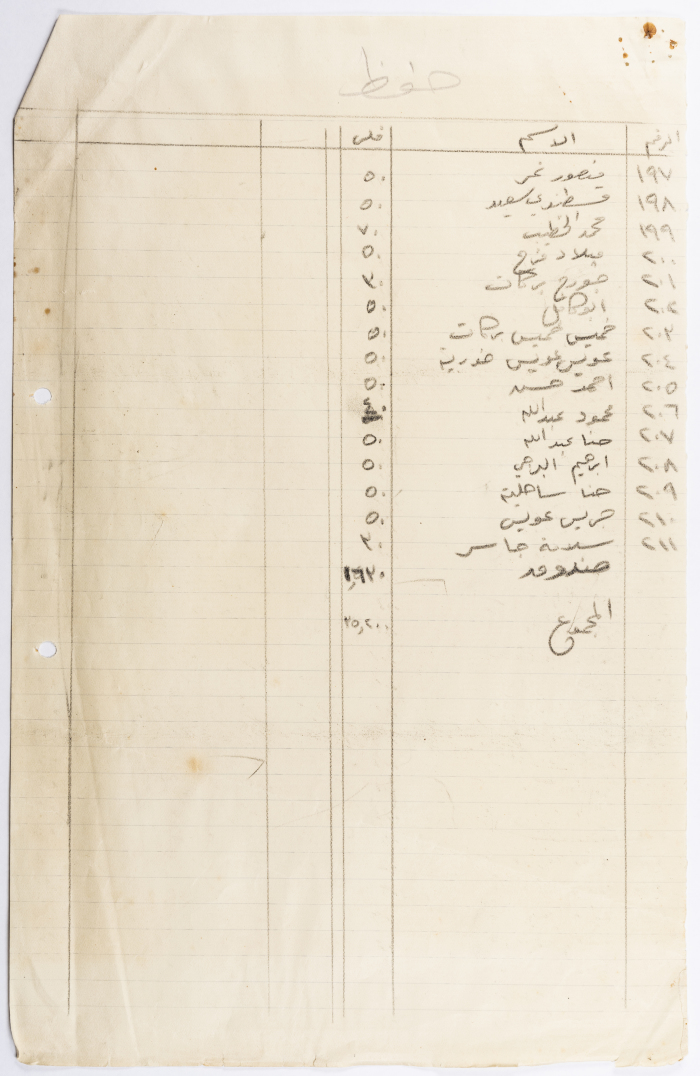 حفظ
الرقم الاسم فلس
١٩٧ منصور نمر ٥٠
١٩٨ قسطندي سعيد ٥٠
١٩٩ محمد الخطيب ٧٠
٢٠٠ ميلاد فرح ٥٠
٢٠١ جورج بركات ٣٠
٢٠٢ ابو كامل ٥٠
٢٠٣ خميس خميس بركات ٥٠
٢٠٤ عويس عويس خورية ٥٠
٢٠٥ احمد حسن ٥٠
٢٠٦ محمود عبدالله ٤٠
٢٠٧ حنا عبدالله ٥٠
٢٠٨ ابرهيم ٥٠
٢٠٩ حنا ساحلية ٥٠
٢١٠ جريس عويس ٥٠
٢١١ سلامة جاسر ٣٠
صندوقه ١,٦٣٠
المجموع ٢٥,٢٠٠